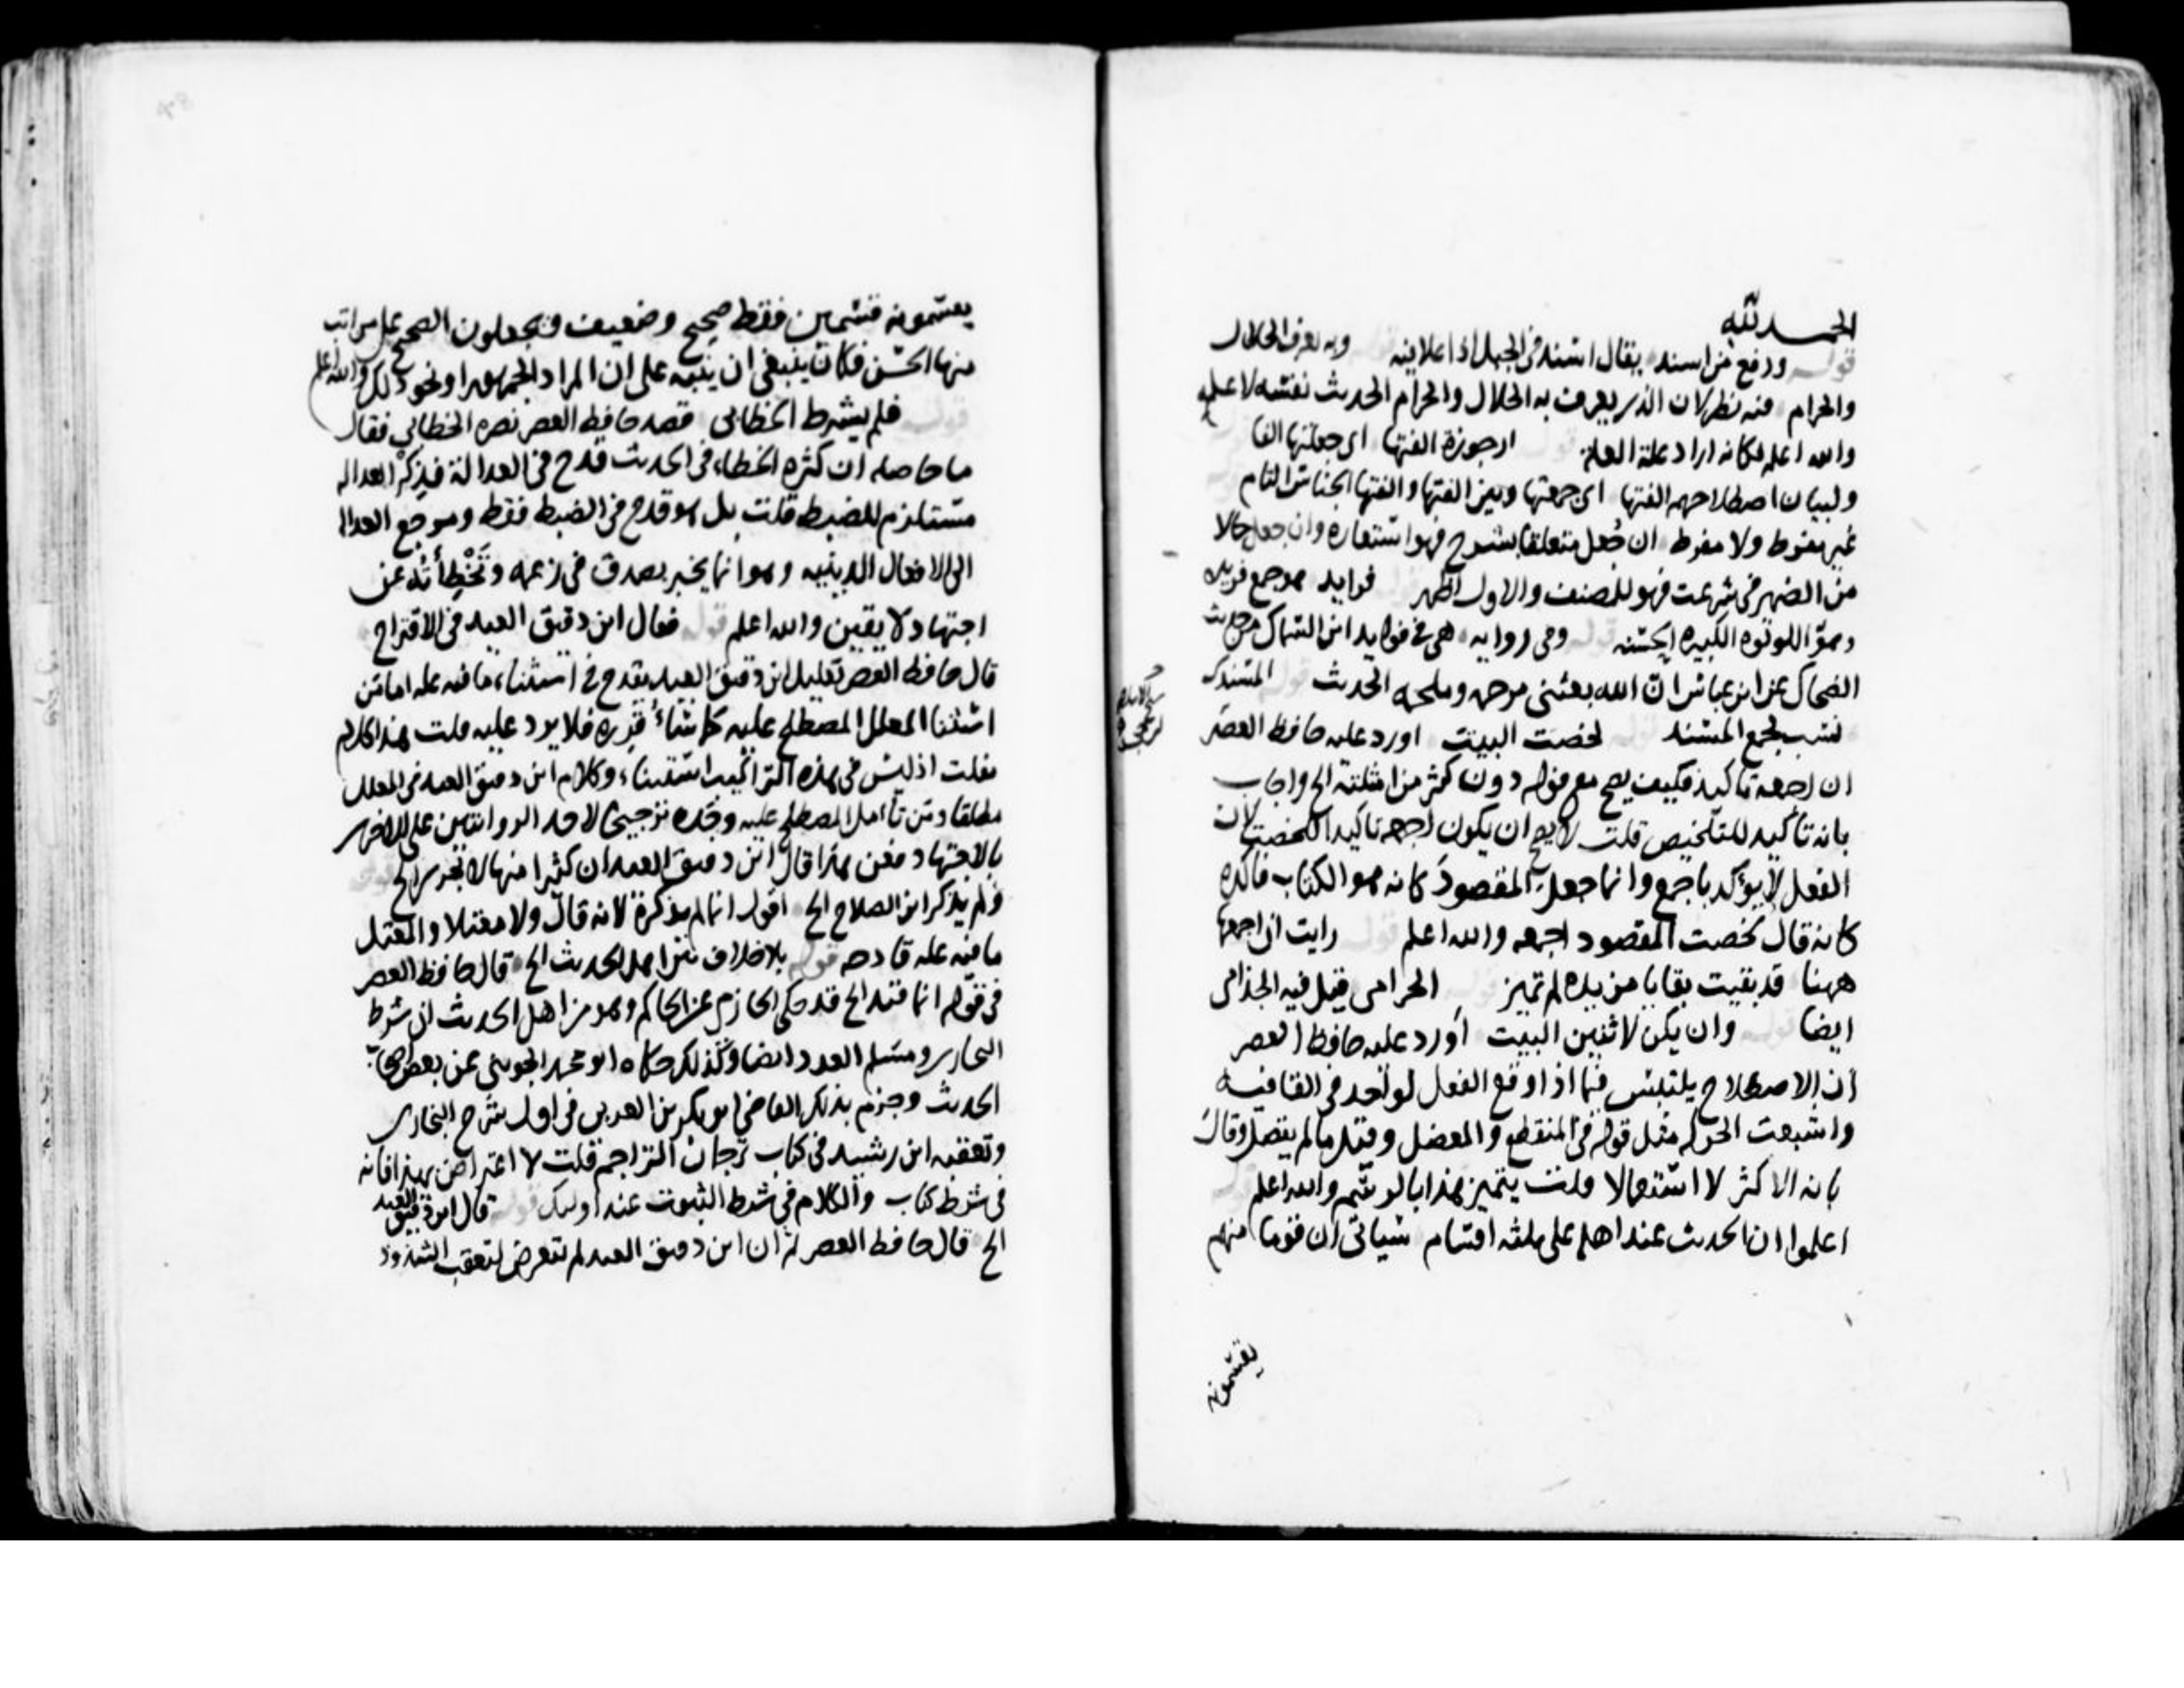 الحمد لله
قوله ورفع من اسند يقال اسند في الجبل اذا علا فيه وبه يعرف الحلال
والحرام فيه نظر لان الذي يعرف به الحلال والحرام الحديث نفسه لا علمه
والله اعلم فكانه اراد علة العلة قوله ارجوزة الفتها اي جعلتها الفا
ولبيان اصطلاحهم الفتها اي جمعتها وبين الفتها والفتها الجناس التام
غير مفوط ولا مفرط ان جعل متعلقا بشرح فهو استعارة وان جعل حالا
من الضمير في شرعت فهو للمصنف والاول اظهر فوايد هو جمع فريده
وهو اللولوه الكبيره الحسنه قوله وفي روايه هي في فوايد ابن السماك من حديث
الضحاك عن ابن عباس ان الله بعثني مرحمه وملحمه الحديث قوله المسندك
نسب لجمع المسند قوله لخصت البيت اورد عليه حافظ العصر
ان اجمعه تاكيد فكيف يصح مع قوله دون اكثر من امثلته الخ واجاب
بانه تاكيد للتلخيص قلت لا يصح ان يكون اجمعه تاكيدا للخصت لان
الفعل لا يؤكد باجمع وانما جعل المقصود كانه هو الكتاب فاكده
كانه قال لخصت المقصود اجمعه والله اعلم قوله رايت ان اجمعها
ههنا قد بقيت بقايا من يده لم تميز قوله الحرامي قيل فيه الجذامي
ايضا قوله وان يكن لاثنين البيت اورد عليه حافظ العصر
ان الاصطلاح يلتبس فيما اذا وقع الفعل لواحد في القافيه
واشبعت الحركه مثل قوله في المنقطع والمعضل وقيل ما لم يتصل وقال
بانه الاكثر لا استعمالا قلت يتميز هذا بالرسم والله اعلم قوله
اعلموا ان الحديث عند اهله على ثلثه اقسام سياتي ان قوما منهم
يقسمونه
يقسمونه قسمين فقط صحيح وضعيف ويجعلون الصحيح على مراتب
منها الحسن فكان ينبغي ان ينبه على ان المراد الجمهور او نحو ذلك والله اعلم
قوله فلم يشرط الخطابي قصد حافظ العصر نصره الخطابي فقال
ما حاصله ان كثره الخطاء في الحديث قدح في العدالة فذكر العداله
مستلزم للضبط قلت بل هو قدح في الضبط فقط ومرجع العداله
الى الافعال الدينيه وهو انما يخبر بصدق في زعمه وتخطأته عن
اجتهاد لا يقين والله اعلم قوله فقال ابن دقيق العيد في الاقتراح
قال حافظ العصر تعليل ابن دقيق العيد يقدح في استثناء ما فيه عله اما من
استثنا المعلل المصطلح عليه كما شاء قدره فلا يرد عليه قلت هذا كلام
نقلت اذ ليس في هذه التراكيب استثناء وكلام ابن دقيق العيد في المعلل
مطلقا ومن تأمل المصطلح عليه وجده ترجيحا لاحد الروايتين على الاخرى
بالاجتهاد فعن هذا قال ابن دقيق العيد ان كثيرا منها لا تجري الخ قوله
ولم يذكر ابن الصلاح الخ اقول انما لم يذكره لانه قال ولا معللا والمعلل
ما فيه عله قادحه قوله بلا خلاف بين اهل الحديث الخ قال حافظ العصر
في قوله انما قيد الخ قد حكى الحازمي عن الحاكم وهو من اهل الحديث ان شرط
البخاري ومسلم العدد ايضا وكذلك حكاه ابو محمد الجويني عن بعض اصحاب
الحديث وجزم بذلك القاضي ابو بكر بن العربي في اول شرح البخاري
وتعقبه ابن رشيد في كتاب ترجمان التراجم قلت لا اعتراض بهذا فانه
في شرط كتاب والكلام في شرط الثبوت عند اوليك قوله قال ابن دقيق العيد
الخ قال حافظ العصر ان ابن دقيق العيد لم يتعرض لتعقب الشذوذ